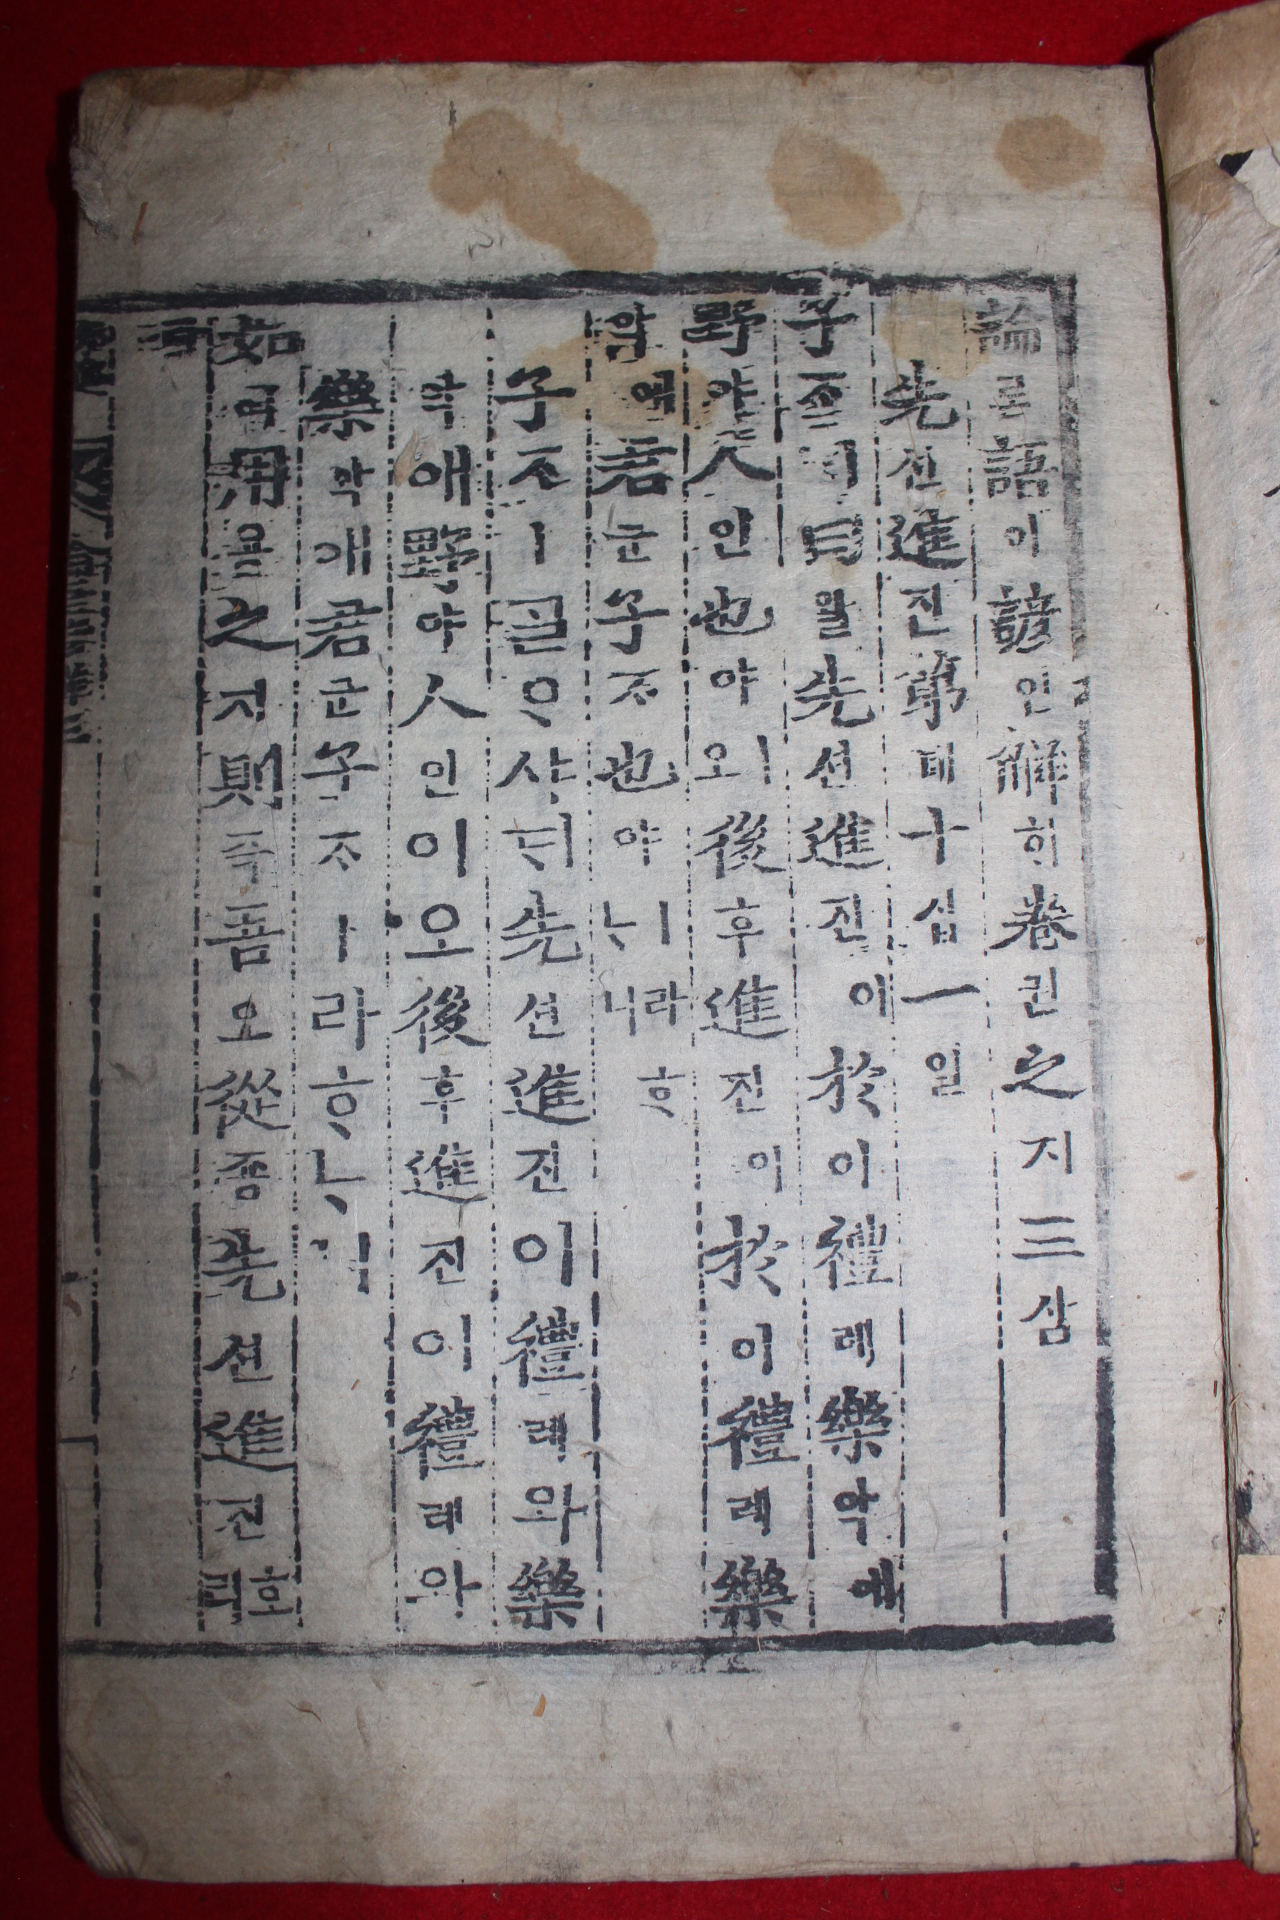 論론語어諺언解ᄒᆡ卷권之지三삼
先션進진第뎨十십一일
子ᄌᆞㅣ曰왈先션進진이於어禮례樂악에
野야人인也야ㅣ오後후進진이於어禮례樂
악에君군子ᄌᆞ也야ㅣ라ᄒᆞᄂᆞ니
子ᄌᆞㅣᄀᆞᆯᄋᆞ샤ᄃᆡ先션進진이禮례와樂
악애野야人인이오後후進진이禮례와
樂악애君군子ᄌᆞㅣ라ᄒᆞᄂᆞ니
如여用용之지則즉吾오從종先션進진호리